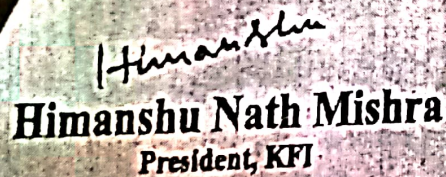 Himanshu
Himanshu Nath Mishra
President, KFI